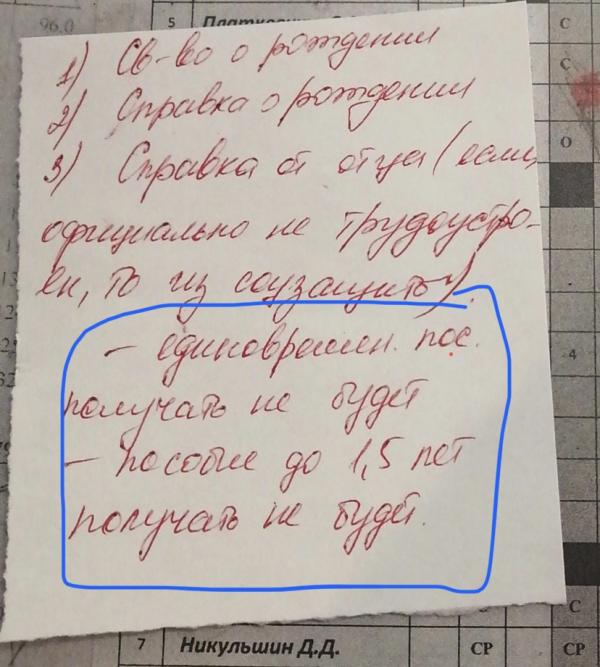 96.0
5
С
1) Св-во о рождении
С
2) Справка о рождении
3) Справка от отца (если
О
официально не трудоустро-
ен, то из соцзащиты).
- единовремен. пос.
4
получать не будет
- пособие до 1,5 лет
получать не будет.
С
7 Никульшин Д.Д. СР СР